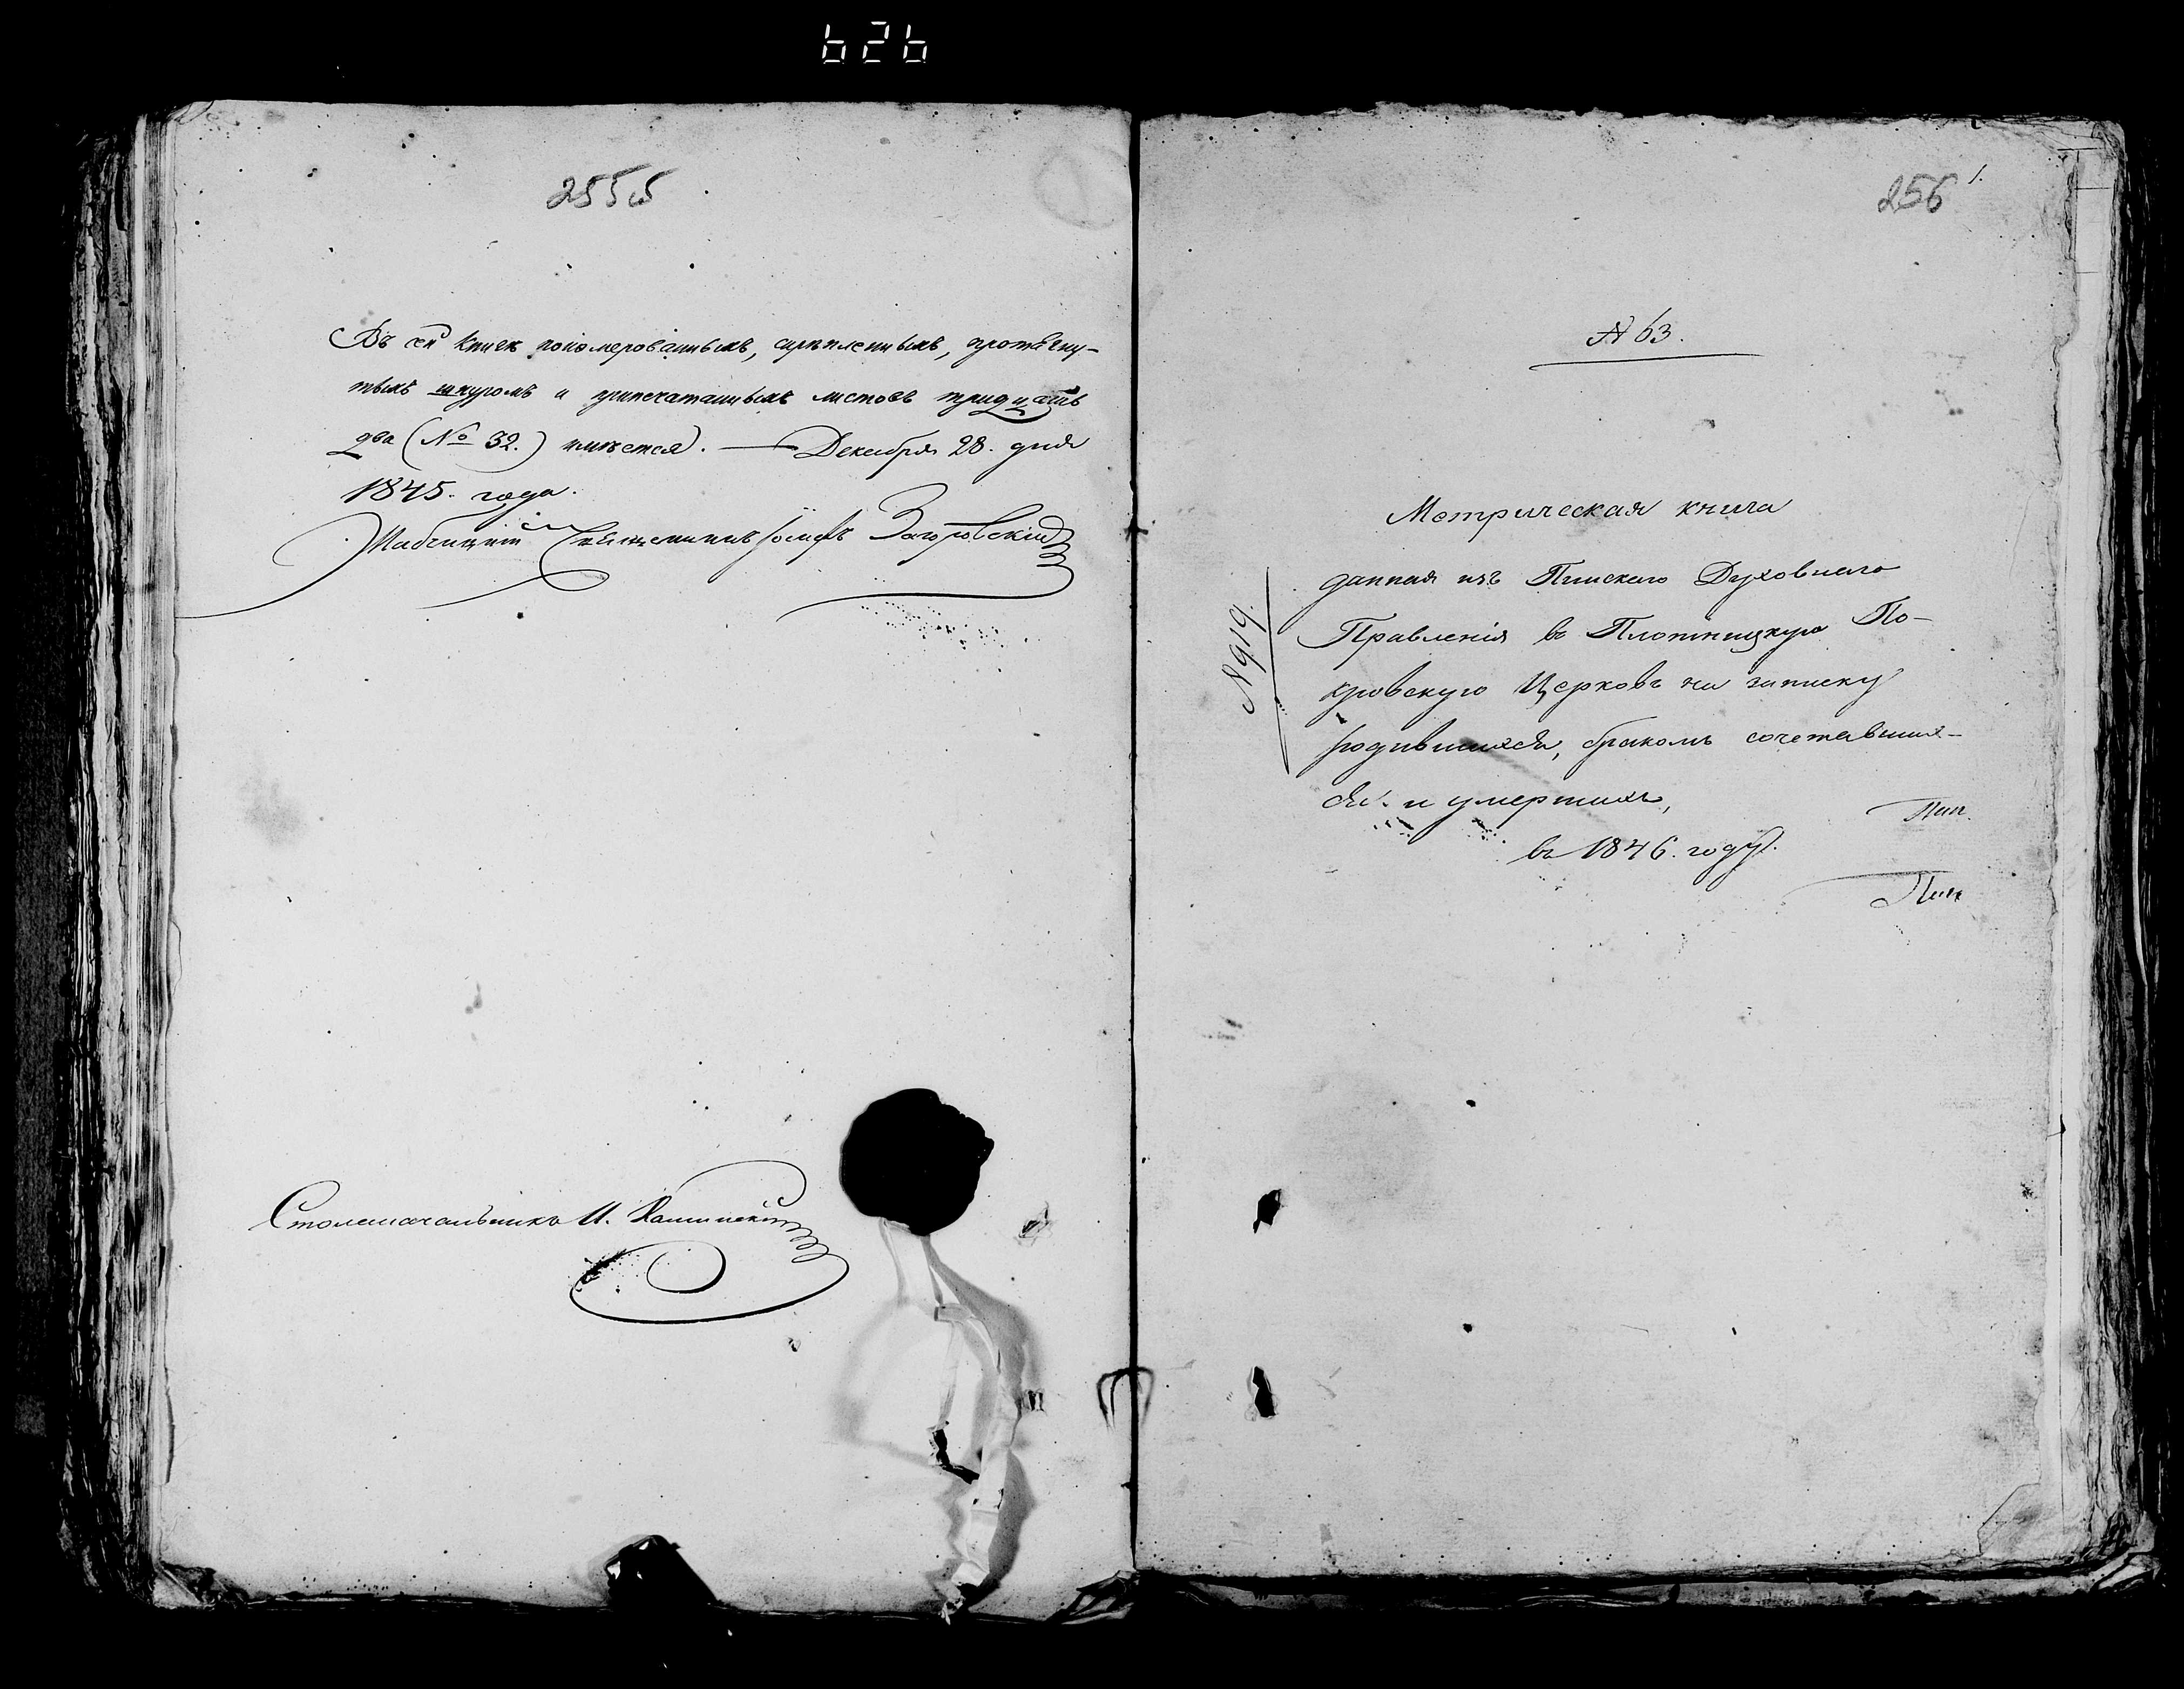 626
255об
Въ сей книге пономерованныхъ, скрепленныхъ, протягну-
тыхъ шнуромъ и припечатанныхъ листовъ тридцать
два (№ 32.) имѣется. — Декабря 28. дня
1845. года.
Священникъ Іосифъ Загоровскій
Столоначальникъ И.
256 1.
№ 63.
Метрическая книга
данная изъ Пинскаго Духовнаго
Правленія въ Плотницкую По-
кровскую Церковь на записку
родившихся, бракомъ сочетавших-
ся и умершихъ,
въ 1846. году.
Пин.
Пин
№ 919.